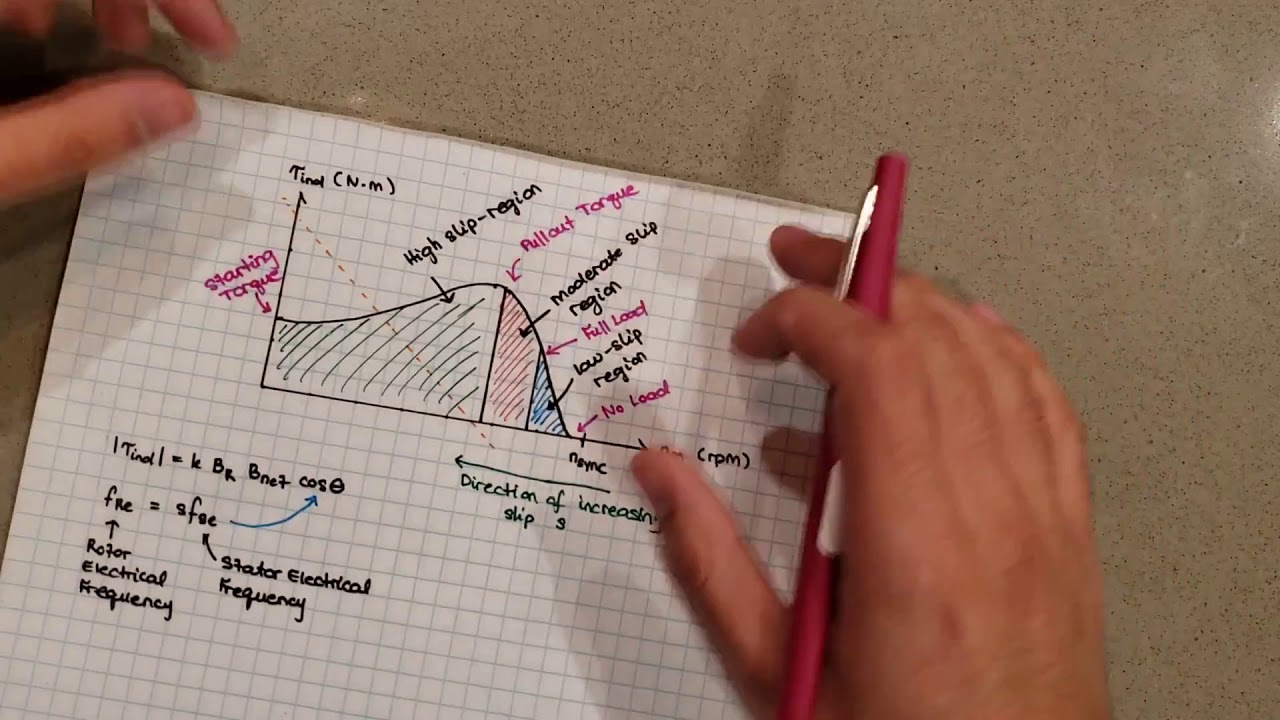 τind (N·m)
High slip-region
Pullout Torque
Starting
Torque
moderate slip
region
Full Load
low-slip
region
No Load
nsync
(rpm)
Direction of increasing
slip s
|τind| = k BR Bnet cosθ
fRe = sfse
Rotor
Electrical
Frequency
Stator Electrical
Frequency